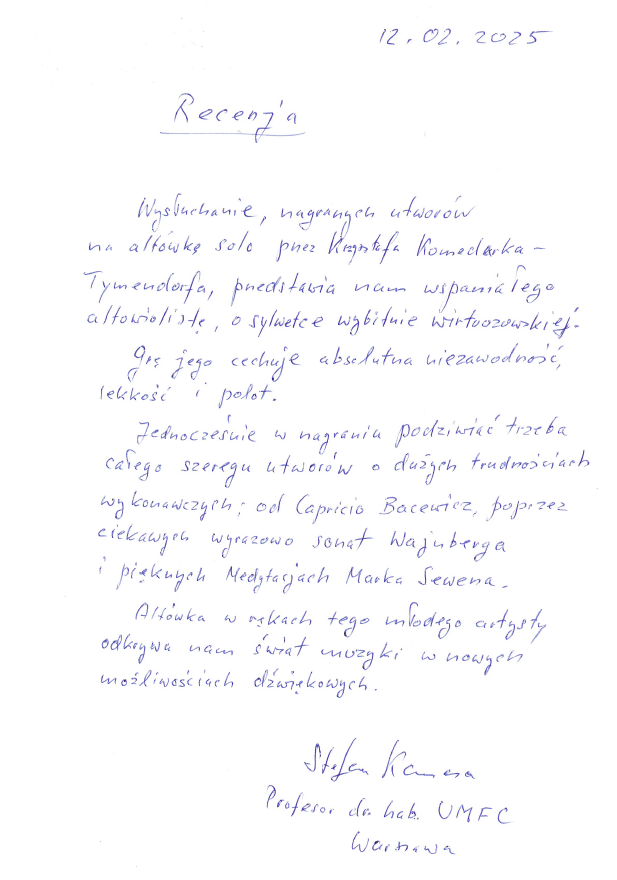 12.02.2025
Recenzja
Wysłuchanie, nagranych utworów
na altówkę solo przez Krzysztofa Komendarka –
Tymendorfa, przedstawia nam wspaniałego
altowiolistę, o sylwetce wybitnie wirtuozowskiej.
Grę jego cechuje absolutna niezawodność,
lekkość i polot.
Jednocześnie w nagraniu podziwiać trzeba
całego szeregu utworów o dużych trudnościach
wykonawczych; od Capricio Bacewicz, poprzez
ciekawych wyrazowo sonat Wajnberga
i pięknych Medytacjach Marka Sewena.
Altówka w rękach tego młodego artysty
odkrywa nam świat muzyki w nowych
możliwościach dźwiękowych.
Stefan Kamasa
Profesor dr. hab. UMFC
Warszawa